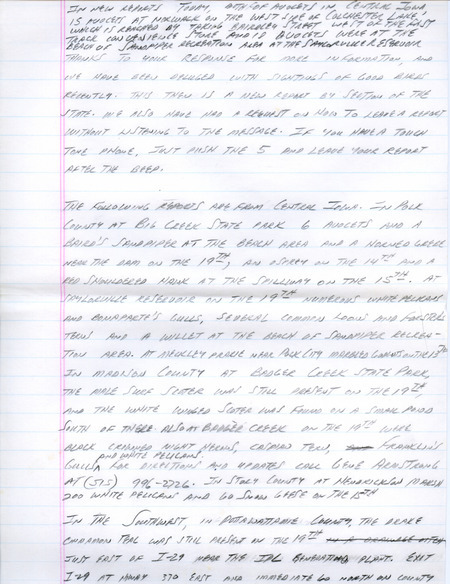 IN NEW REPORTS TODAY, 20TH OF AVOCETS IN CENTRAL IOWA,
15 AVOCETS AT NORWALK ON THE WEST SIDE OF COLCHESTER LAKE,
WHICH IS REACHED BY TAKING STREET WEST OF THE KWIK
TRACK CONVENIENCE STORE AND 10 AVOCETS WERE AT THE
BEACH OF SANDPIPER RECREATION AREA AT THE SAYLORVILLE RESERVOIR
THANKS TO YOUR RESPONSE FOR MORE INFORMATION, AND
WE HAVE BEEN DELUGED WITH SIGHTINGS OF GOOD BIRDS
RECENTLY. THIS THEN IS A NEW REPORT BY SECTION OF THE
STATE. WE ALSO HAVE HAD A REQUEST ON HOW TO LEAVE A REPORT
WITHOUT LISTENING TO THE MESSAGE. IF YOU HAVE A TOUCH
TONE PHONE, JUST PUSH THE 5 AND LEAVE YOUR REPORT
AFTER THE BEEP.
THE FOLLOWING REPORTS ARE FROM CENTRAL IOWA. IN POLK
COUNTY AT BIG CREEK STATE PARK 6 AVOCETS AND A
BAIRD'S SANDPIPER AT THE BEACH AREA AND A HORNED GREBE
NEAR THE DAM ON THE 19TH, AN OSPREY ON THE 14TH AND A
RED SHOULDERED HAWK AT THE SPILLWAY ON THE 15TH. AT
SAYLORVILLE RESERVOIR ON THE 19TH NUMEROUS WHITE PELICANS
AND BONAPARTE'S GULLS, SEVERAL COMMON LOONS AND FORSTERS
TERNS AND A WILLET AT THE BEACH OF SANDPIPER RECREA-
TION AREA. AT PRAIRIE NEAR POLK CITY MARBLED GODWIT ON THE 13TH
IN MADISON COUNTY AT BADGER CREEK STATE PARK,
THE MALE SURF SCOTER WAS STILL PRESENT ON THE 19TH,
AND THE WHITE WINGED SCOTER WAS FOUND ON A SMALL POND
SOUTH OF THERE. ALSO AT BADGER CREEK ON THE 19TH WERE
BLACK CROWNED NIGHT HERONS, CASPIAN TERN, FRANKLIN'S
GULLS AND WHITE PELICANS. FOR DIRECTIONS AND UPDATES CALL GENE ARMSTRONG
AT (515) 996-2726. IN STORY COUNTY AT HENDRICKSON MARSH
200 WHITE PELICANS AND 60 SNOW GEESE ON THE 15TH
IN THE SOUTHWEST, IN POTTAWATTAMIE COUNTY, THE DRAKE
CINNAMON TEAL WAS STILL PRESENT ON THE 19TH
JUST EAST OF I-29 NEAR THE GENERATING PLANT. EXIT
I-29 AT HIWAY 370 EAST AND IMMEDIATE GO NORTH ON COUNTY